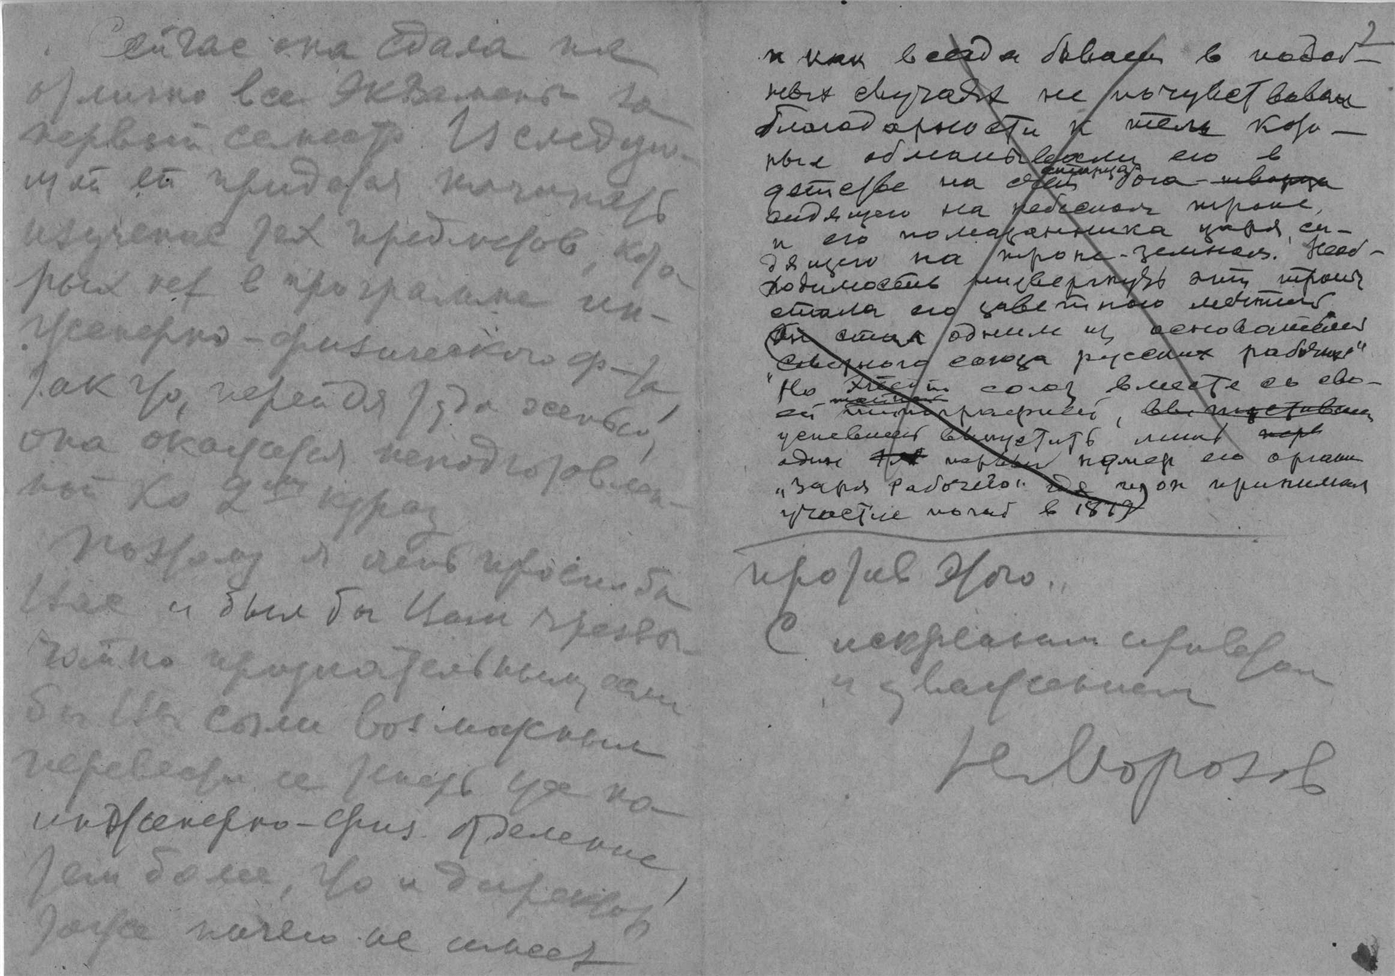 Сейчас она сдала на
отлично все экзамены за
первый семестр. И следую-
щий ей придется начинать
изучение тех предметов, кото-
рых нет в программе ин-
женерно-физического ф-та,
так что, перейдя туда осенью,
она окажется неподготовлен-
ной ко 2ому курсу.
Поэтому я очень просил бы
Вас и был бы Вам чрезвы-
чайно признательным, если
бы Вы сочли возможным
перевести ее теперь же на
инженерно-физ. отделение,
тем более, что и директор
тоже ничего не имеет
2
и как всегда бывает в подоб-
ных случаях не почувствовал
благодарности к тем кото-
рые обманывали его в
детстве на счет бога-творца
сидящего на небесном троне,
и его помазанника царя, си-
дящего на троне-земном. Необ-
ходимость низвергнуть эти троны
стала его заветною мечтой
Он стал одним из основателей
"Северного союза русских рабочих"
Но этот союз вместе со сво-
ей типографией,
успевшей выпустить лишь
один первый номер его органа
"Заря рабочего" где и он принимал
участие погиб в 1879
против этого.
С искренним приветом
и уважением
Н. Морозов